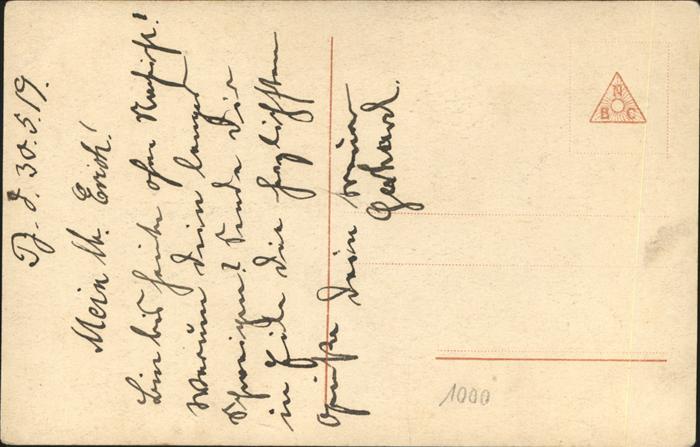 Pf. d. 30.5.19.
Mein lb. Erich!
Bin bis heute ohne Nachricht!
Warum Dein langes
Schweigen? Sende Dir
in Eile die herzlichsten
Grüße Dein treuer
Gerhard.
N
B C
1000